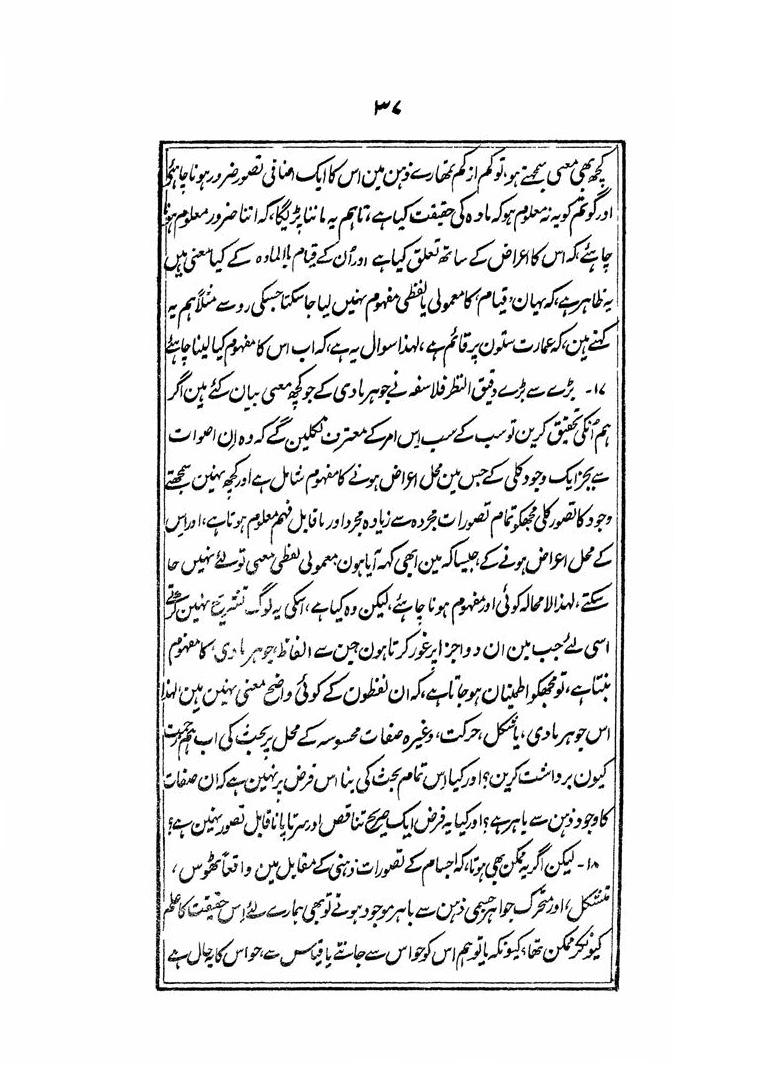 ۳۷
کچھ بھی معنی سمجھتے ہو، تو کم از کم تمھارے ذہن مین اس کا ایک اضافی تصور ضرور ہونا چاہئے
اور گو تم کو یہ نہ معلوم ہو کہ مادہ کی حقیقت کیا ہے، تاہم یہ ماننا پڑیگا، کہ اتنا ضرور معلوم ہونا
چاہئے، کہ اس کا اعراض کے ساتھ تعلق کیا ہے اور اُن کے قیام بالمادہ کے کیا معنی ہیں
یہ ظاہر ہے، کہ یہان، قیام، کا معمولی یا لفظی مفہوم نہیں لیا جا سکتا جسکی رو سے مثلاً ہم یہ
کہتے ہین، کہ عمارت ستون پر قائم ہے، لہذا سوال یہ ہے، کہ اب اس کا مفہوم کیا لینا چاہئے
۱۷۔ بڑے سے بڑے دقیق النظر فلاسفہ نے جوہر مادی کے جو کچھ معنی بیان کئے ہین اگر
ہم اُنکی تحقیق کرین تو سب کے سب اِس امر کے معترف نکلین گے کہ وہ اِن اصوات
سے بجز ایک وجود کلی کے جس مین محل اعراض ہونے کا مفہوم شامل ہے اور کچھ نہین سمجھتے
وجود کا تصور کلی مجھکو تمام تصورات مجردہ سے زیادہ مجرد اور ناقابل فہم معلوم ہوتا ہے، اور اِس
کے محل اعراض ہونے کے، جیسا کہ مین ابھی کہہ آیا ہون معمولی لفظی معنی تو لئے نہیں جا
سکتے، لہذا لامحالہ کوئی اور مفہوم ہونا چاہئے، لیکن وہ کیا ہے، اسکی یہ لوگ تشریح نہین کرتے
اسی لئے جب مین ان دو اجزا پر غور کرتا ہون جن سے الفاظ، جوہر مادی، کا مفہوم
بنتا ہے، تو مجھکو اطمینان ہو جاتا ہے، کہ ان لفظون کے کوئی واضح معنی نہین ہین، لہذا
اس جوہر مادی، یا شکل، حرکت، وغیرہ صفات محسوسہ کے محل پر بحث کی اب ہم زحمت
کیون برداشت کرین؟ اور کیا اِس تمام بحث کی بنا اس فرض پر نہین ہے کہ ان صفات
کا وجود ذہن سے باہر ہے؟ اور کیا یہ فرض ایک صریح تناقص اور سرتاپا ناقابل تصور نہین ہے؟
۱۸۔ لیکن اگر یہ ممکن بھی ہوتا، کہ اجسام کے تصورات ذہنی کے مقابل مین واقعاً ٹھوس،
متشکل، اور متحرک جواہر جسمی ذہن سے باہر موجود ہوتے تو بھی ہمارے لئے اِس حقیقت کا علم
کیونکر ممکن تھا، کیونکہ یا تو ہم اس کو حواس سے جانتے یا قیاس سے، حواس کا یہ حال ہے